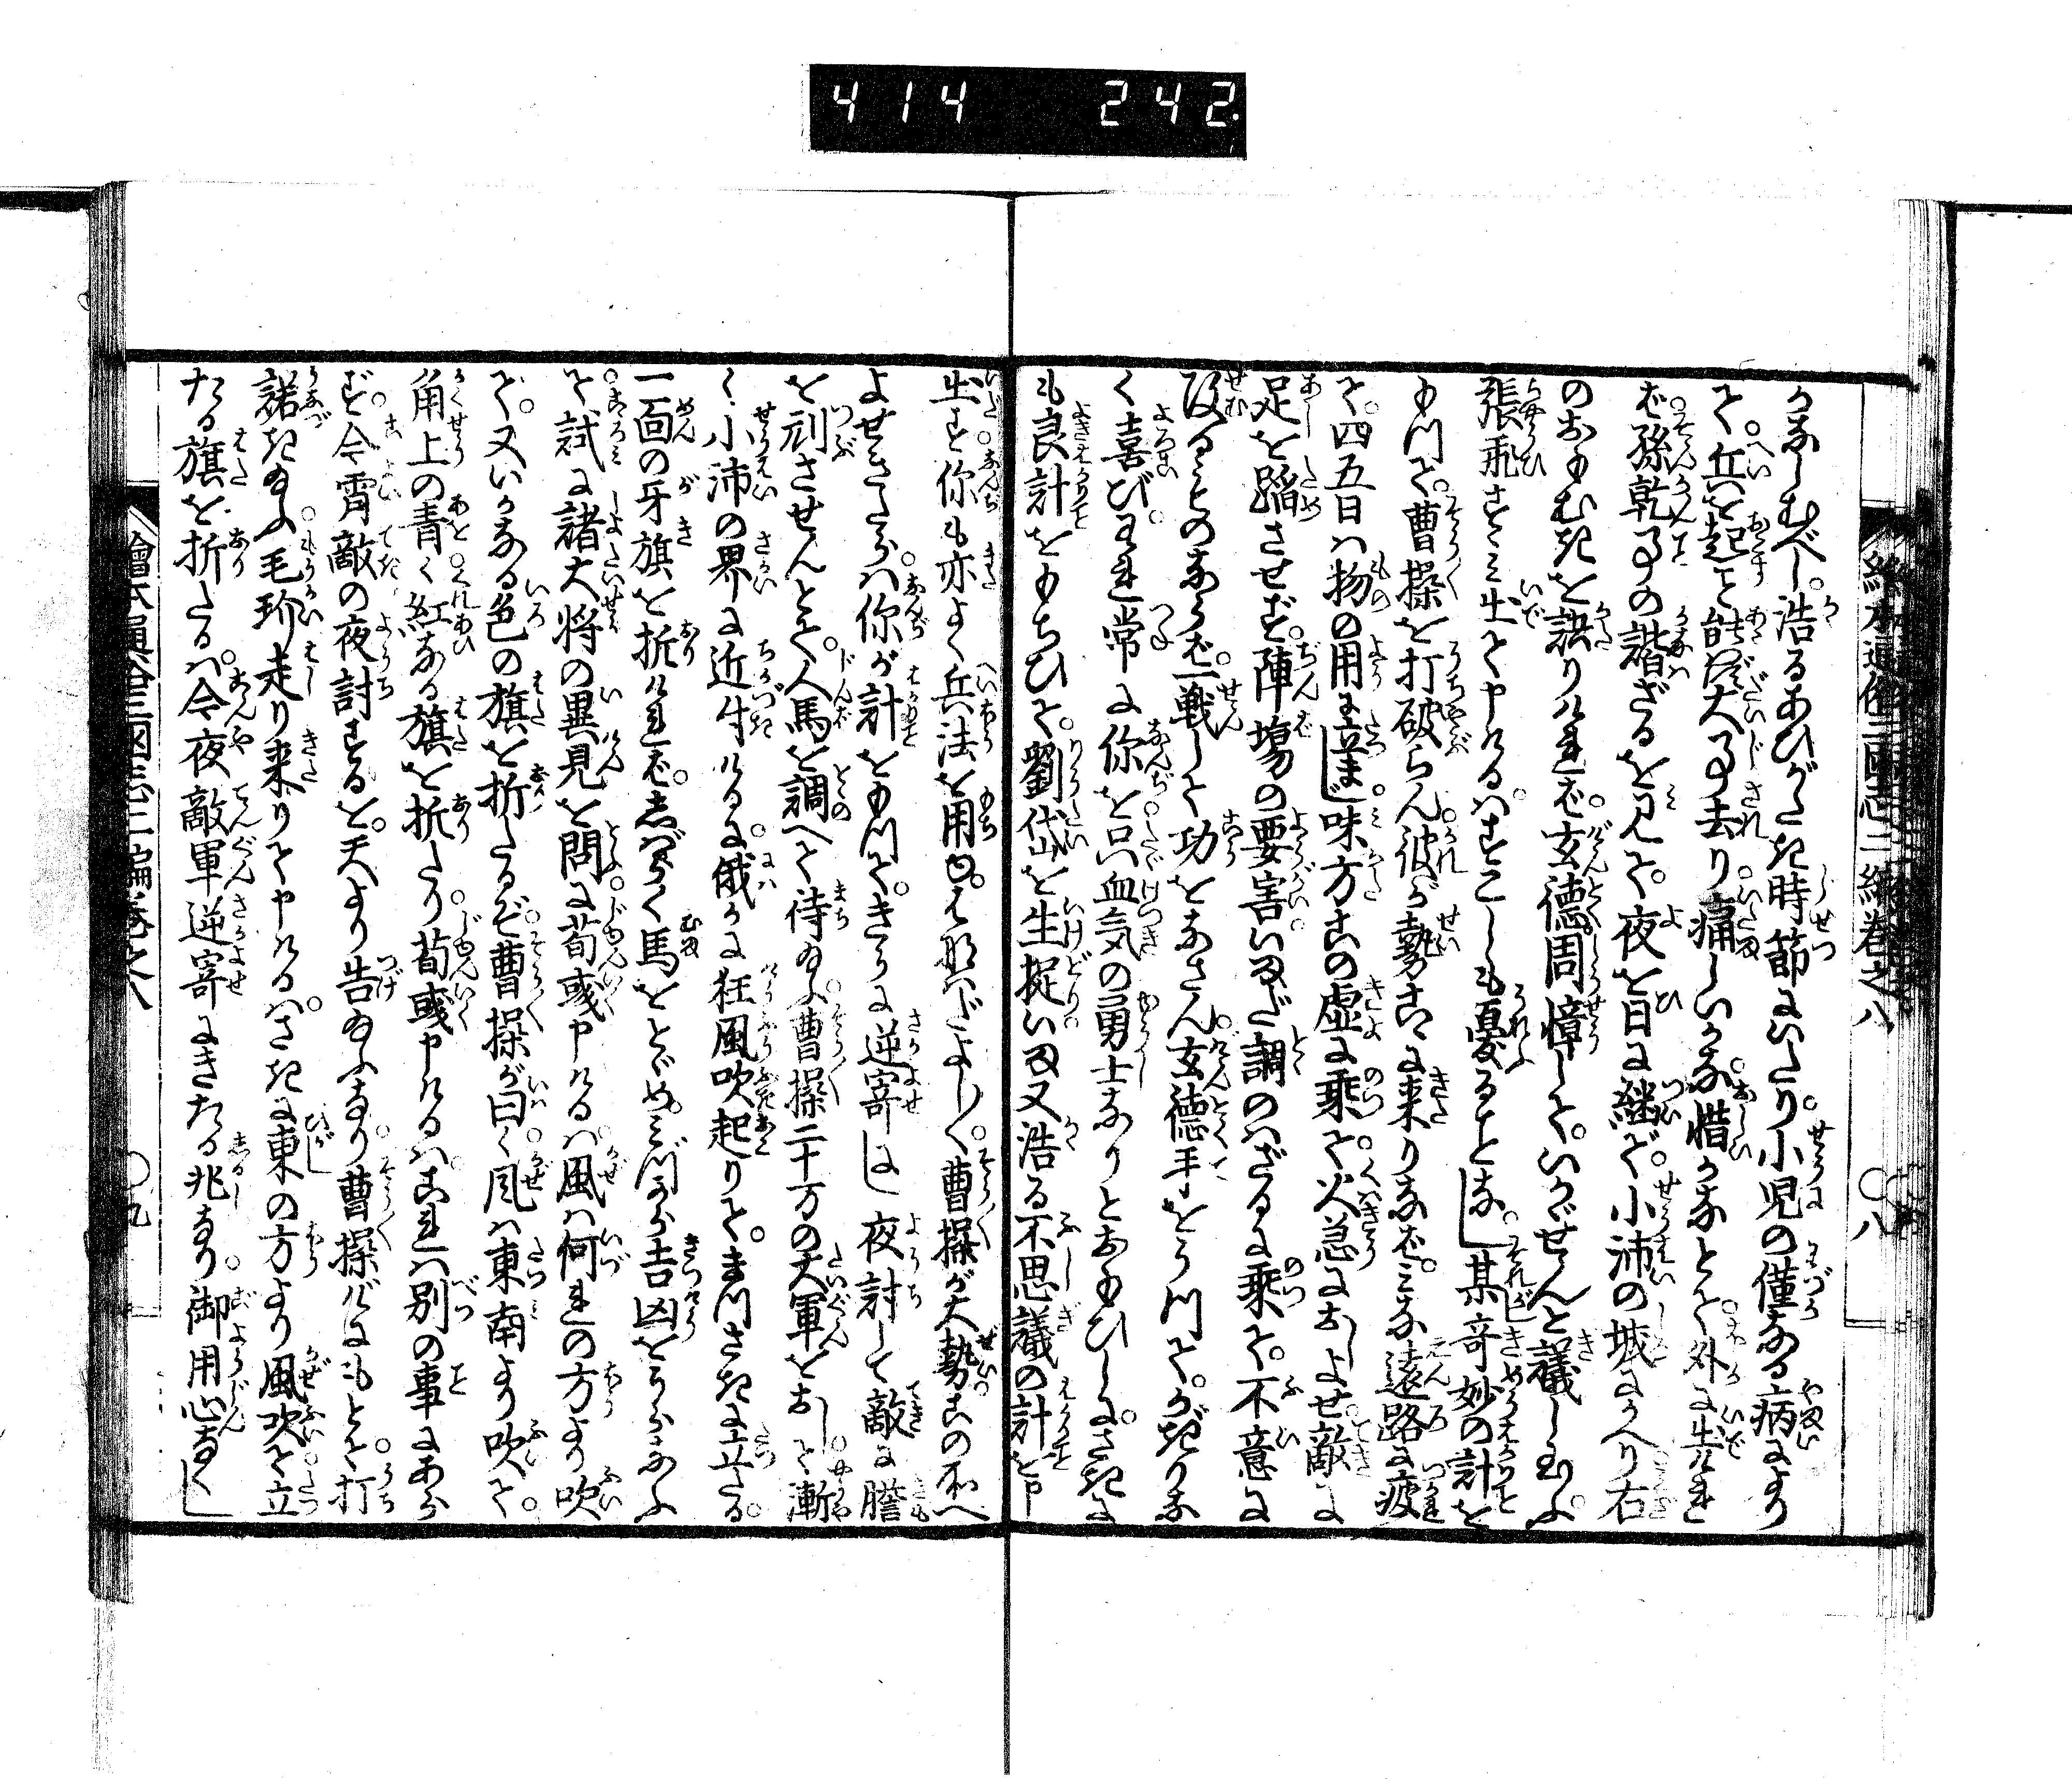 414 242
絵本通俗三國志二編巻之八 〇八
かなしむべし。浩るあひがたき時節にいたり。小児の僅なる病により
て。兵を起さず。能はず大事去り。痛しいかな。惜かなとて。外に出ければ
孫乾事の諧ざるを見て。夜を日に継で。小沛の城にかへり右
のおもむきを訣りければ。玄徳周慞して。いかゞせんと議し玉ふ。
張飛すゝみ出て申けるは。すこしも憂ることなし。某奇妙の計を
もつて。曹操を打破らん。彼が勢こゝに来りなば。みな遠路に疲
て。四五日は物の用に立まじ。味方この虚に乗て。火急におしよせ。敵に
足を蹈させず。陣場の要害いまだ調のはざるに乗て。不意に
攻るものならば。一戦して功をなさん。玄徳手をうつて。かぎりな
く喜び。われ常に你を只血気の勇士なりとおもひしに。さきに
も良計をもちひて。劉岱を生捉いま又浩る不思議の計を申
出す。你も亦よく兵法を用ゆ。さらばよし〳〵。曹操が大勢この所へ
よせきたらは。你が計をもつて。きうに逆寄し 夜討して敵に謄
を刑させんとて。人馬を調へて待玉ふ。曹操二十万の大軍をおして漸
く小沛の界に近付けるに。俄かに狂風吹起りて。まつさきに立たる。
一面の牙旗を折ければ。しばらく馬をとゞめ。みづから吉凶をうらなふ
て 試に諸大将の異見を問に。荀彧申けるは。風は何れの方より吹
て。又いかなる色の旗を折たるぞ。曹操が曰く。風は東南より吹て。
角上の青く紅なる旗を折たり。荀彧申けるは。これは別の事にあら
ず。今霄敵の夜討するを。天より告玉ふなり。曹操げにもとて。打
諾き玉ふ。毛玠走り来りて申けるは。さきに東の方より風吹て立
たる旗を折たるは。今夜敵軍逆寄にきたる兆なり。御用心なくし
繪本通俗三國志二編巻之八 〇九